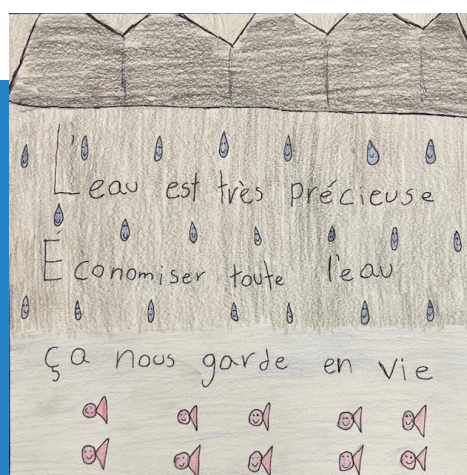 L'eau est très précieuse
Économiser toute l'eau
ça nous garde en vie